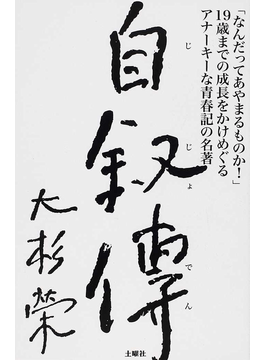 「なんだってあやまるものか!」
19歳までの成長をかけめぐる
アナーキーな青春記の名著
自叙傳
じじょでん
大杉榮
土曜社